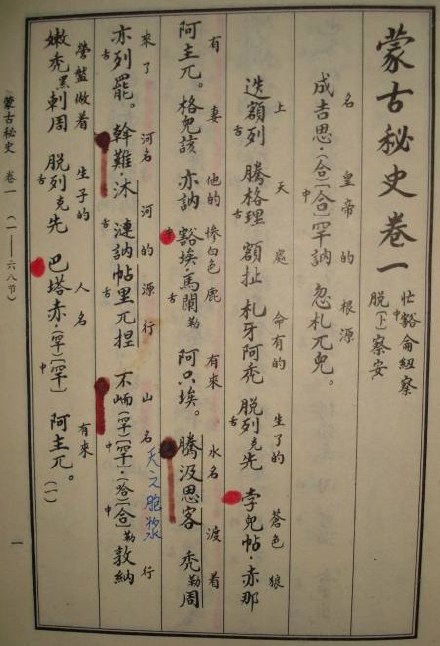 蒙古秘史卷一
忙中豁侖紐察
脱[卜]察安
名 皇帝 的 根源
成吉思·(合)[中合]罕訥 忽札兀兒。
上 天 處 命有的 生了的 蒼色 狼
迭額舌列 騰格舌理 額扯 札牙阿禿 脱舌列克先 孛兒帖·赤那
有 妻 他的 慘白色 鹿 有來 水名 渡着
阿主兀。格兒該 亦訥 中豁埃·馬闌勒 阿只埃。騰汲思客 禿勒周
來了 河名 河的源行 山名 行
天之胞漿
亦舌列罷。斡難·沐舌漣訥帖舌里兀揑 不峏(罕)[中罕]·(哈)[中合]勒敦納
營盤做着 生子的 人名 有來
嫩禿黑剌周 脱舌列克先 巴塔赤·(罕)[中罕] 阿主兀。(一)
蒙古秘史 卷一 (一——六八节)
一